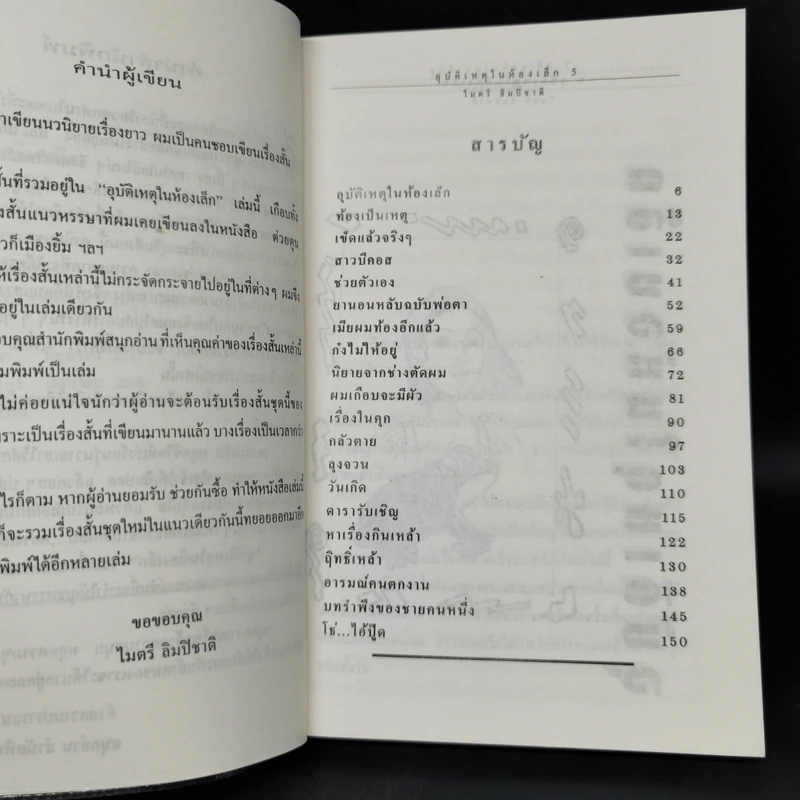 คำนำผู้เขียน
าเขียนนวนิยายเรื่องยาว ผมเป็นคนชอบเขียนเรื่องสั้น
สั้นที่รวมอยู่ใน “อุบัติเหตุในห้องเล็ก” เล่มนี้ เกือบทั้ง
งสั้นแนวหรรษาที่ผมเคยเขียนลงในหนังสือ ต่วยตูน
วก็เมืองยิ้ม ฯลฯ
ห้เรื่องสั้นเหล่านี้ไม่กระจัดกระจายไปอยู่ในที่ต่างๆ ผมจึง
อยู่ในเล่มเดียวกัน
อบคุณสำนักพิมพ์สนุกอ่าน ที่เห็นคุณค่าของเรื่องสั้นเหล่านี้
มพิมพ์เป็นเล่ม
ไม่ค่อยแน่ใจนักว่าผู้อ่านจะต้อนรับเรื่องสั้นชุดนี้ของ
ราะเป็นเรื่องสั้นที่เขียนมานานแล้ว บางเรื่องเป็นเวลากว่า
ไรก็ตาม หากผู้อ่านยอมรับ ช่วยกันซื้อ ทำให้หนังสือเล่มนี้
ก็จะรวมเรื่องสั้นชุดใหม่ในแนวเดียวกันนี้ทยอยออกมาอีก
พิมพ์ได้อีกหลายเล่ม
ขอขอบคุณ
ไมตรี ลิมปิชาติ
อุบัติเหตุในห้องเล็ก 5
ไมตรี ลิมปิชาติ
สารบัญ
อุบัติเหตุในห้องเล็ก 6
ท้องเป็นเหตุ 13
เช็ดแล้วจริงๆ 22
สาวบีคอส 32
ช่วยตัวเอง 41
ยานอนหลับฉบับพ่อตา 52
เมียผมท้องอีกแล้ว 59
ก๋งไม่ให้อยู่ 66
นิยายจากช่างตัดผม 72
ผมเกือบจะมีผัว 81
เรื่องในคุก 90
กลัวตาย 97
ลุงจวน 103
วันเกิด 110
ดารารับเชิญ 115
หาเรื่องกินเหล้า 122
ฤิทธิ์เหล้า 130
อารมณ์คนตกงาน 138
บทรำพึงของชายคนหนึ่ง 145
โธ่...ไอ้ปู๊ด 150